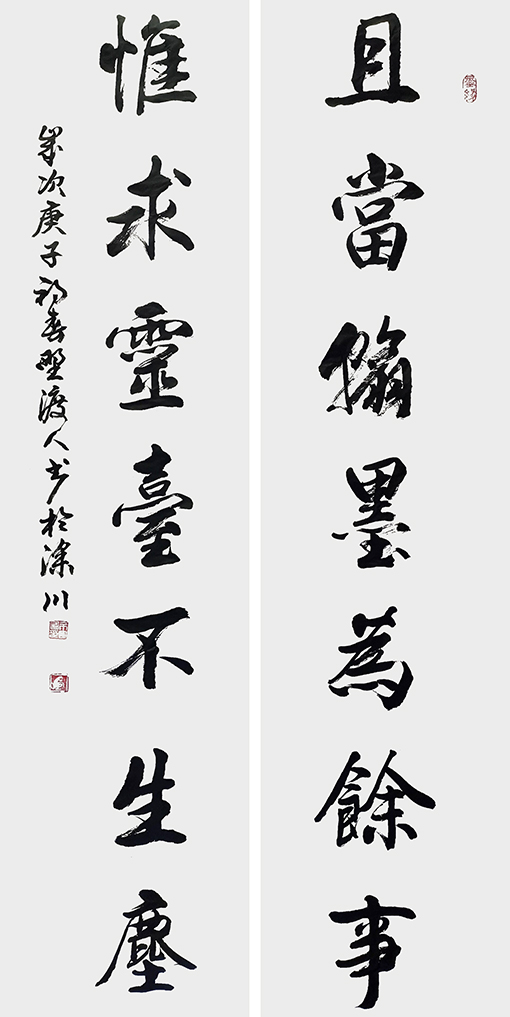 且當翰墨為餘事
惟求靈臺不生塵
歲次庚子初春野渡人书於滁川